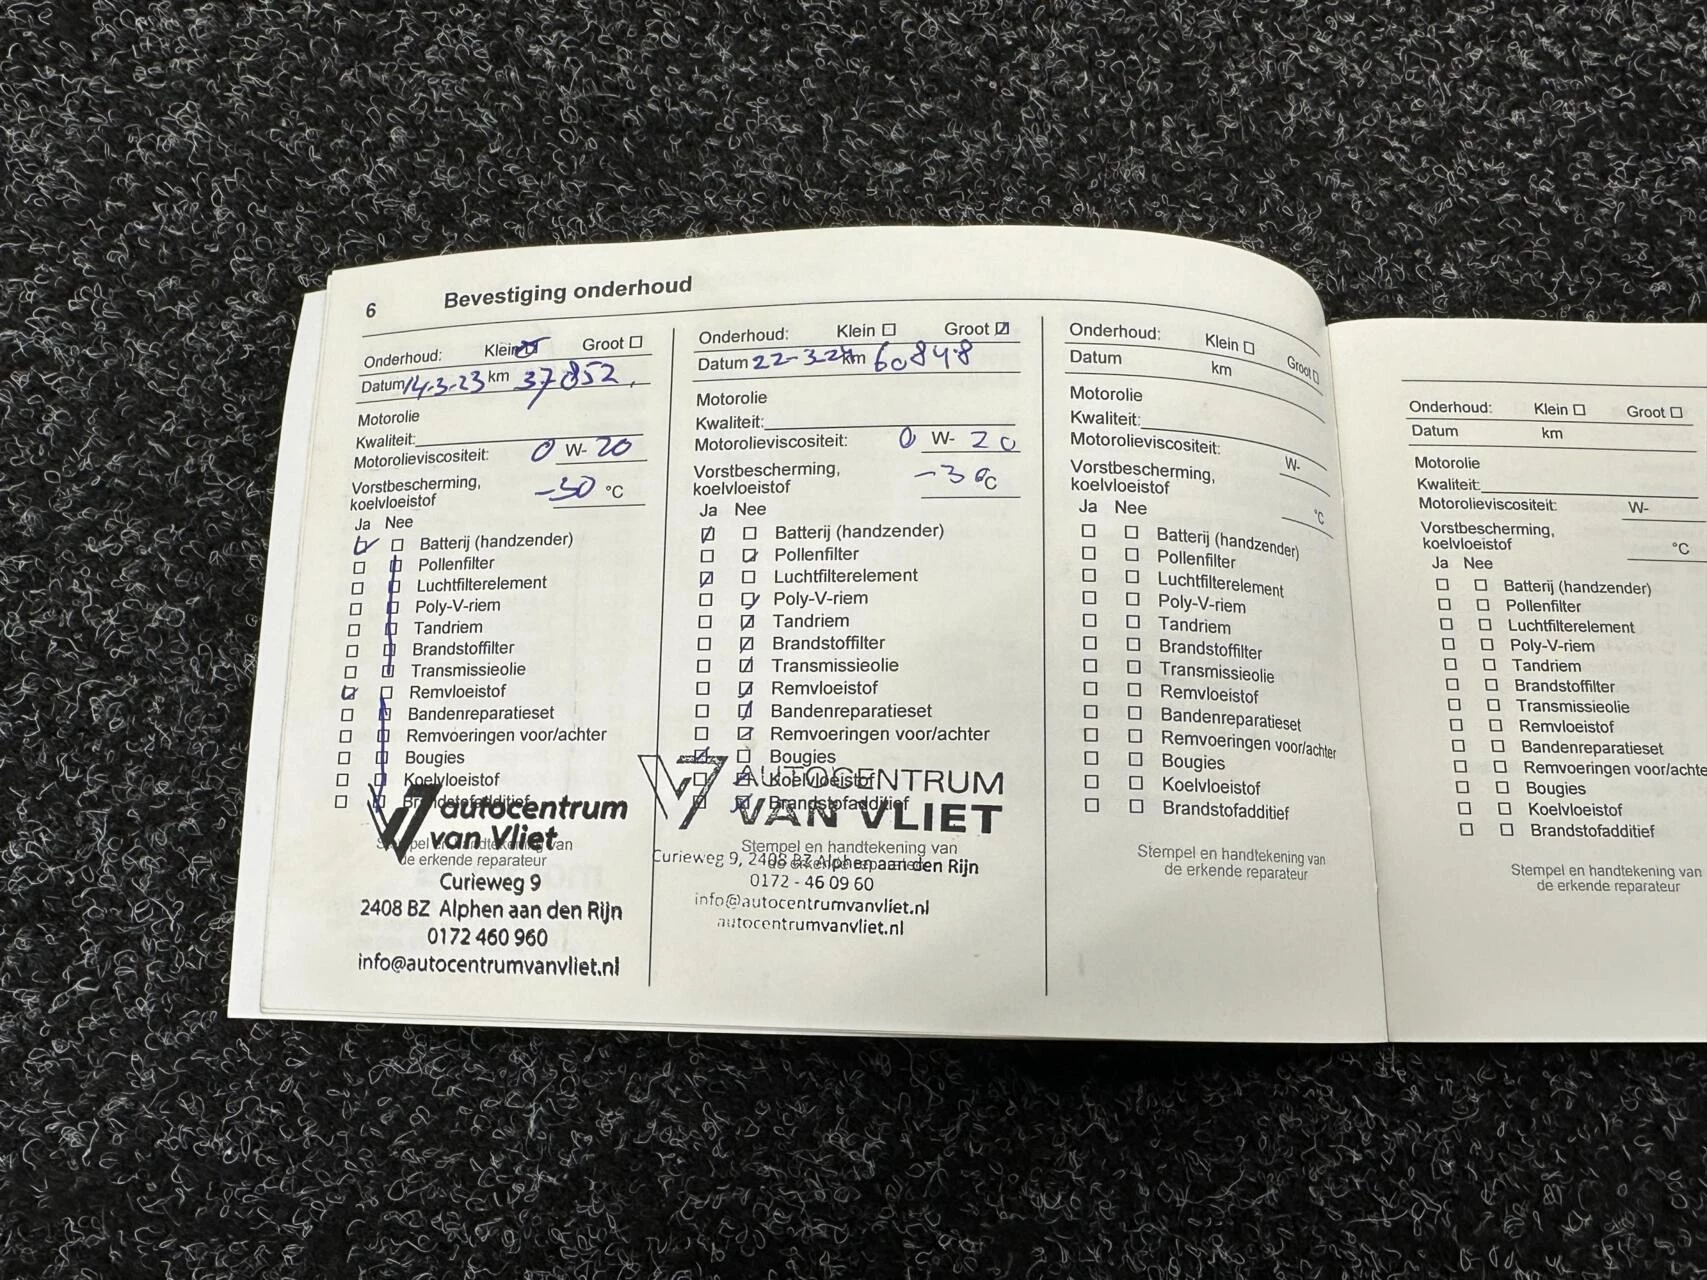 6 Bevestiging onderhoud
Onderhoud: Klein Groot
Datum 14-3-23 km 37852
Motorolie
Kwaliteit:
Motorolieviscositeit: 0 W- 20
Vorstbescherming,
koelvloeistof -30 °C
Ja Nee
Batterij (handzender)
Pollenfilter
Luchtfilterelement
Poly-V-riem
Tandriem
Brandstoffilter
Transmissieolie
Remvloeistof
Bandenreparatieset
Remvoeringen voor/achter
Bougies
Koelvloeistof
Brandstofadditief
autocentrum
van Vliet
Stempel en handtekening van
de erkende reparateur
Curieweg 9
2408 BZ Alphen aan den Rijn
0172 460 960
info@autocentrumvanvliet.nl
Onderhoud: Klein Groot
Datum 22-3-24 km 60848
Motorolie
Kwaliteit:
Motorolieviscositeit: 0 W- 20
Vorstbescherming,
koelvloeistof -30 °C
Ja Nee
Batterij (handzender)
Pollenfilter
Luchtfilterelement
Poly-V-riem
Tandriem
Brandstoffilter
Transmissieolie
Remvloeistof
Bandenreparatieset
Remvoeringen voor/achter
Bougies
Koelvloeistof
AUTOCENTRUM
Brandstofadditief
VAN VLIET
Stempel en handtekening van
de erkende reparateur
Curieweg 9, 2408 BZ Alphen aan den Rijn
0172 - 46 09 60
info@autocentrumvanvliet.nl
autocentrumvanvliet.nl
Onderhoud: Klein Groot
Datum km
Motorolie
Kwaliteit:
Motorolieviscositeit: W-
Vorstbescherming,
koelvloeistof °C
Ja Nee
Batterij (handzender)
Pollenfilter
Luchtfilterelement
Poly-V-riem
Tandriem
Brandstoffilter
Transmissieolie
Remvloeistof
Bandenreparatieset
Remvoeringen voor/achter
Bougies
Koelvloeistof
Brandstofadditief
Stempel en handtekening van
de erkende reparateur
Onderhoud: Klein Groot
Datum km
Motorolie
Kwaliteit:
Motorolieviscositeit: W-
Vorstbescherming,
koelvloeistof °C
Ja Nee
Batterij (handzender)
Pollenfilter
Luchtfilterelement
Poly-V-riem
Tandriem
Brandstoffilter
Transmissieolie
Remvloeistof
Bandenreparatieset
Remvoeringen voor/achte
Bougies
Koelvloeistof
Brandstofadditief
Stempel en handtekening van
de erkende reparateur